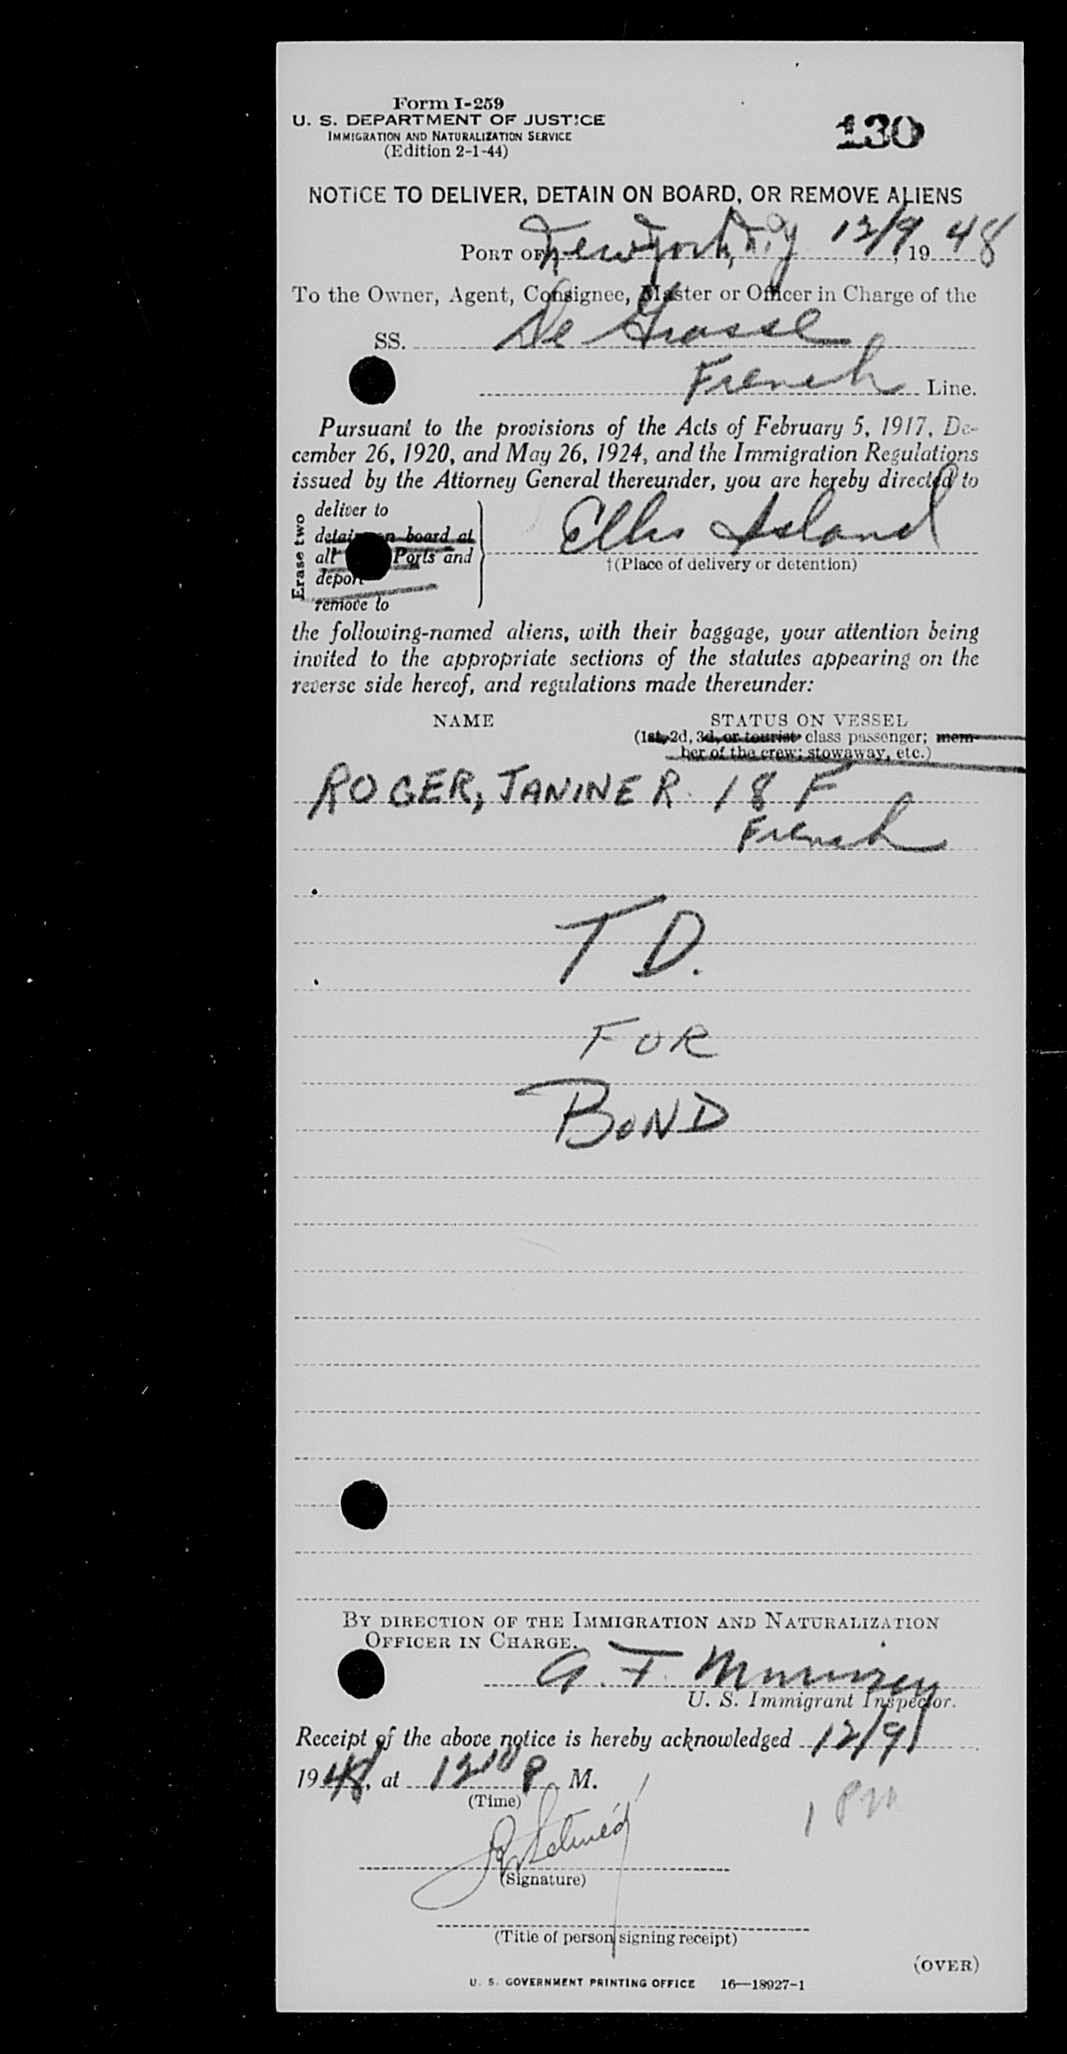 Form I-259
U. S. DEPARTMENT OF JUSTICE
IMMIGRATION AND NATURALIZATION SERVICE
(Edition 2-1-44)
130
NOTICE TO DELIVER, DETAIN ON BOARD, OR REMOVE ALIENS
PORT OF New York, N.Y 12/9, 1948
To the Owner, Agent, Consignee, Master or Officer in Charge of the
SS. De Grasse
French Line.
Pursuant to the provisions of the Acts of February 5, 1917, De-
cember 26, 1920, and May 26, 1924, and the Immigration Regulations
issued by the Attorney General thereunder, you are hereby directed to
Erase two
deliver to
detain on board at
all Ports and
deport
remove to
Ellis Island
†(Place of delivery or detention)
the following-named aliens, with their baggage, your attention being
invited to the appropriate sections of the statutes appearing on the
reverse side hereof, and regulations made thereunder:
NAME STATUS ON VESSEL
(1st, 2d, 3d, or tourist class passenger; mem-
ber of the crew; stowaway, etc.)
ROGER, JANINE R. 18 F
French
T D.
FOR
BOND
BY DIRECTION OF THE IMMIGRATION AND NATURALIZATION
OFFICER IN CHARGE.
U. S. Immigrant Inspector.
Receipt of the above notice is hereby acknowledged 12/9
1948, at 12 10 P M.
(Time)
1 PM
(Signature)
(Title of person signing receipt)
(OVER)
U. S. GOVERNMENT PRINTING OFFICE 16—18927-1